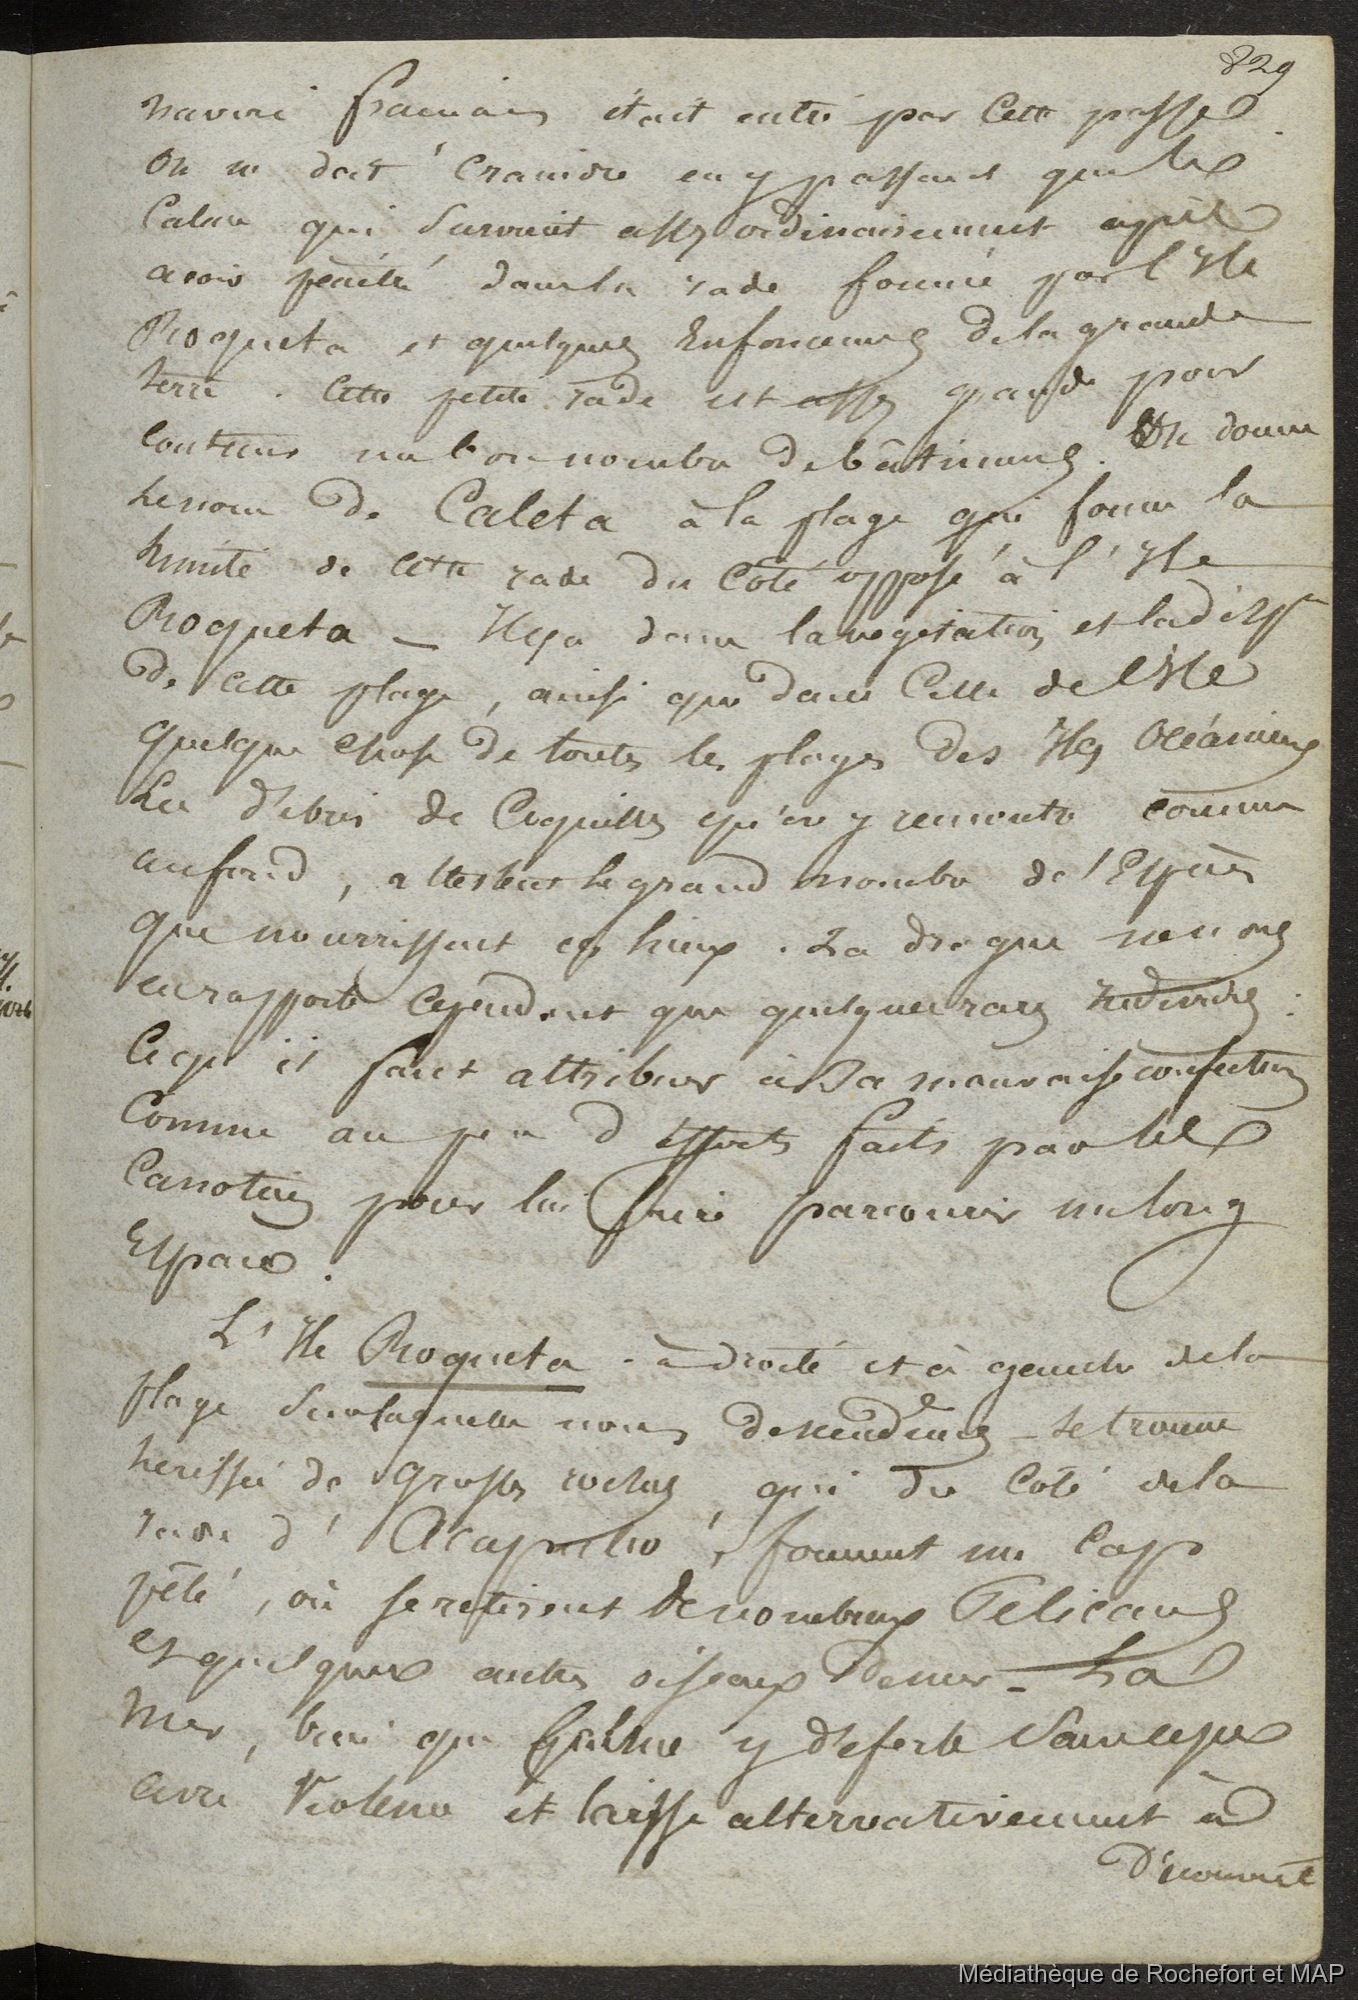 829
navire français était entré par cette passe
On ne doit craindre en y passant que les
Calme qui survient assez ordinairement après
avoir pénétré dans la rade formée par l'Ile
Roqueta et quelques Enfoncemens de la grande
terre. Cette petite rade est assez grande pour
contenir un bon nombre de bâtimens. On donne
le nom de Caleta à la plage qui forme la
limite de cette rade du Coté opposé à l'Ile
Roqueta _ Il y a dans la végétation et la disp
de cette plage, ainsi que dans Celle de l'Ile
quelque chose de toutes les plages des Iles Océaniens
Les débris de Coquilles qu'on y rencontre comme
au fond, attestent le grand nombre de l'Espèces
que nourrissent ces lieux. La drague ne nous
en rapporte cependant que quelques rares Individus :
Ce qu'il faut attribuer à sa mauvaise confection
Comme au peu d'efforts faits par les
Canotiers pour lui faire parcourir un long
Espace.
L'Ile Roqueta - à droite et à gauche de la
plage sur laquelle nous descendimes _ se trouve
herissée de grosses roches, qui du Coté de la
rade d'Acapulco, forment un Cap
pélé, où se retirent de nombreux Pelicans
et quelques autres oiseaux de mer _ La
Mer, bien que Calme y déferle sans cesse
avec Violence et laisse alternativement à
Découvert
Médiathèque de Rochefort et MAP